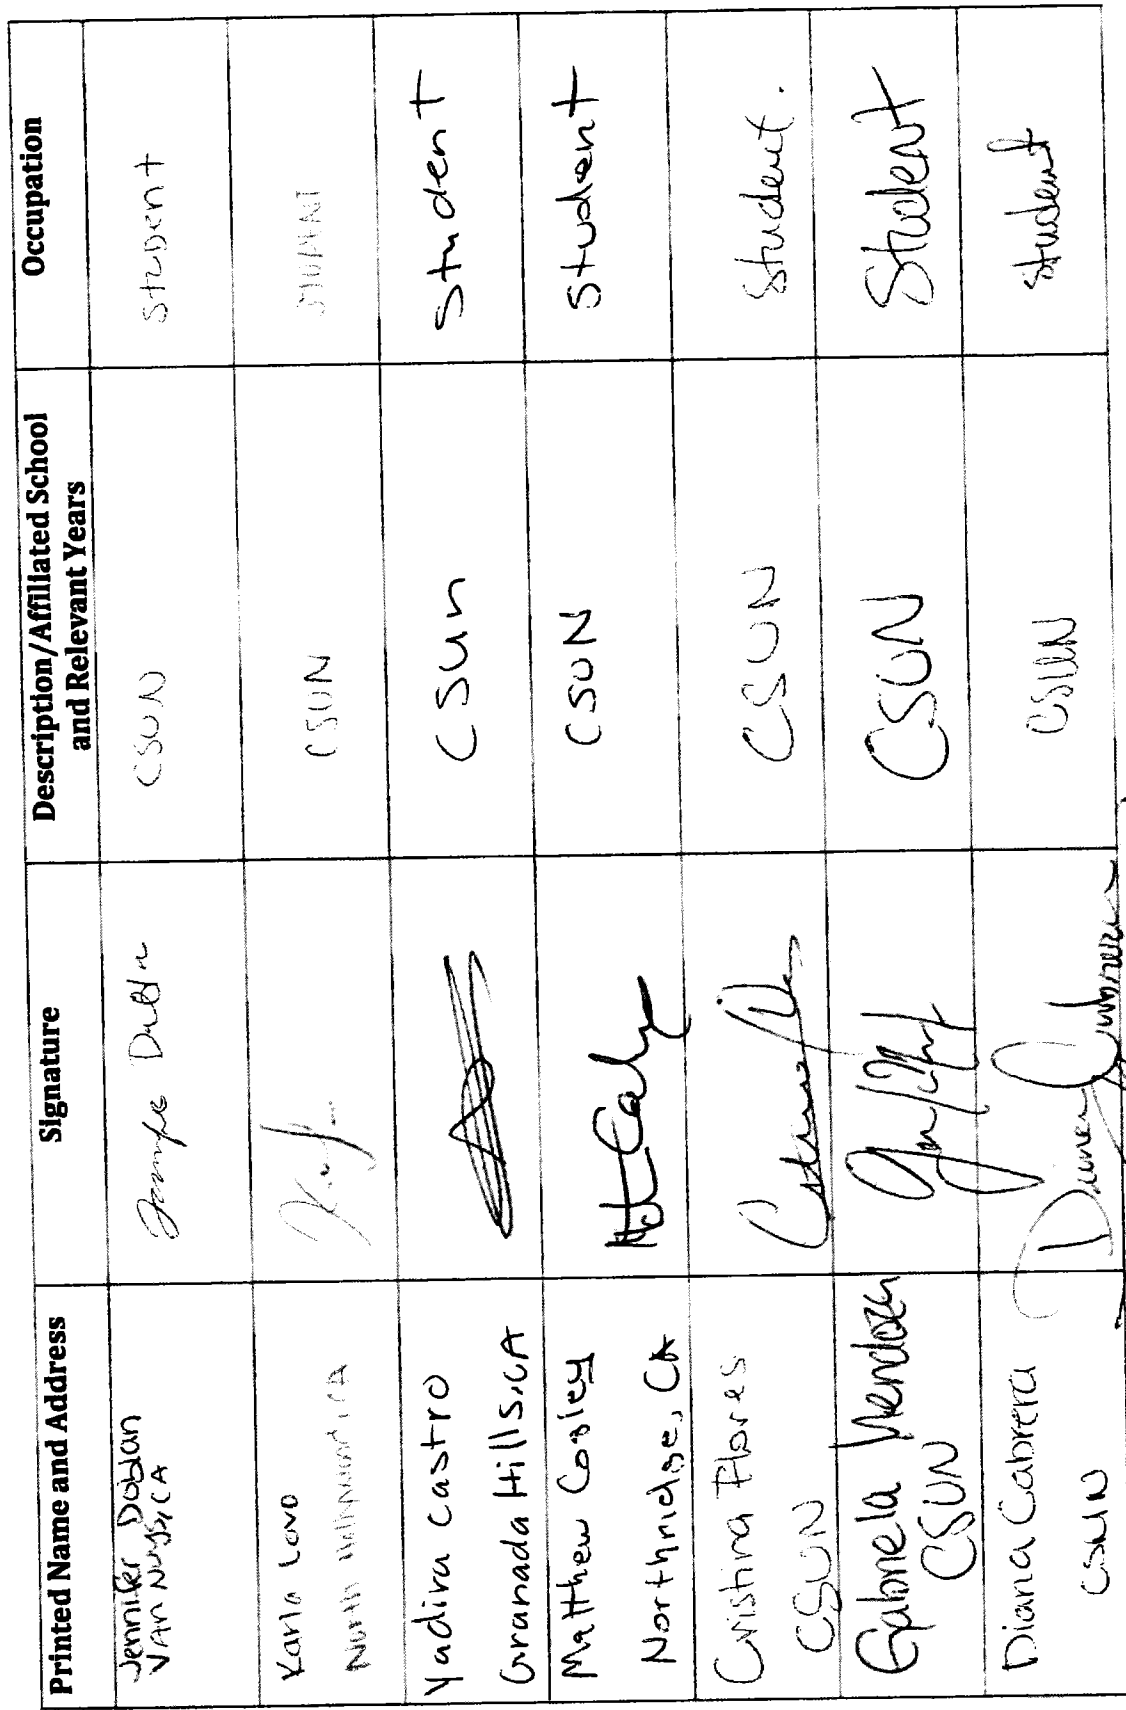 Printed Name and Address
Signature
Description/Affiliated School
and Relevant Years
Occupation
Jennifer Doblan
VAN NUYS, CA
CSUN
Student
Karla Lovo
North Hollywood, CA
CSUN
STUDENT
Yadira Castro
Granada Hills, CA
CSun
Student
Matthew
Northridge, CA
CSUN
Student
Cristina Flores
CSUN
CSUN
Student.
Gabriela Mendoza
CSUN
CSUN
Student
Diana Cabrera
CSUN
CSUN
Student